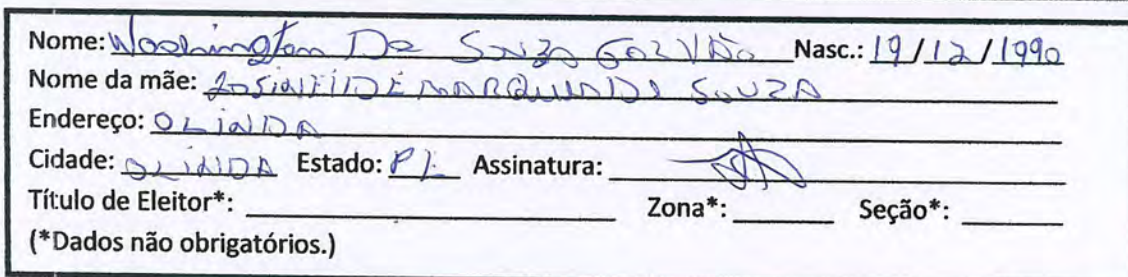 Nome: Washington De Souza Galvão Nasc.: 19/12/1990
Nome da mãe: Josineide Marquin De Souza
Endereço: OLINDA
Cidade: OLINDA Estado: PE Assinatura:
Título de Eleitor*: Zona*: Seção*:
(*Dados não obrigatórios.)